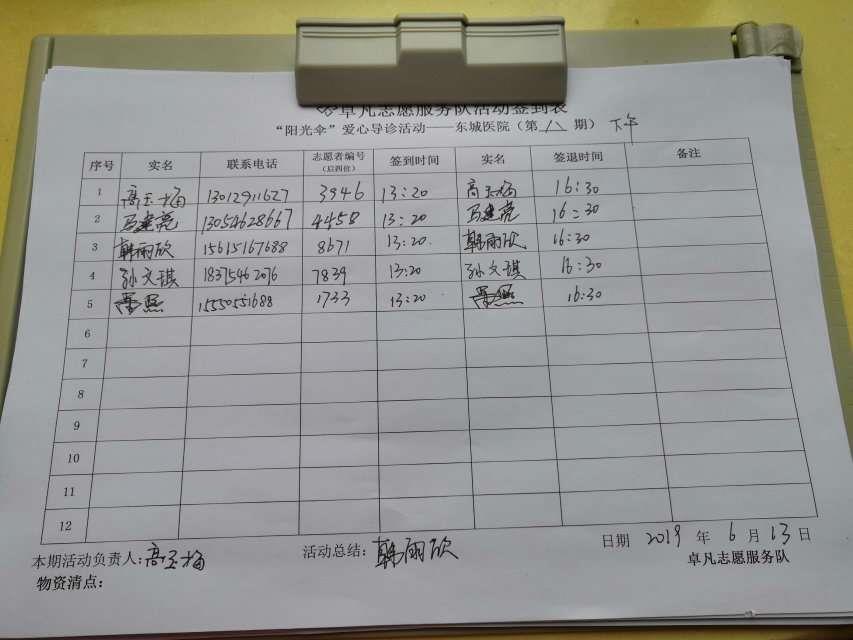 卓凡志愿服务队活动签到表
“阳光伞”爱心导诊活动——东城医院（第 八 期） 下午
序号 实名 联系电话 志愿者编号（后四位） 签到时间 实名 签退时间 备注
1 高玉梅 13012911627 3946 13:20 高玉梅 16:30
2 马建亮 13054628667 4458 13:20 马建亮 16:30
3 韩丽欣 15615167688 8671 13:20. 韩丽欣 16:30
4 孙文琪 18375462076 7839 13:20 孙文琪 16:30
5 15550551688 1733 13:20 16:30
6
7
8
9
10
11
12
本期活动负责人：高玉梅 活动总结：韩丽欣 日期 2019 年 6 月 13 日
物资清点： 卓凡志愿服务队